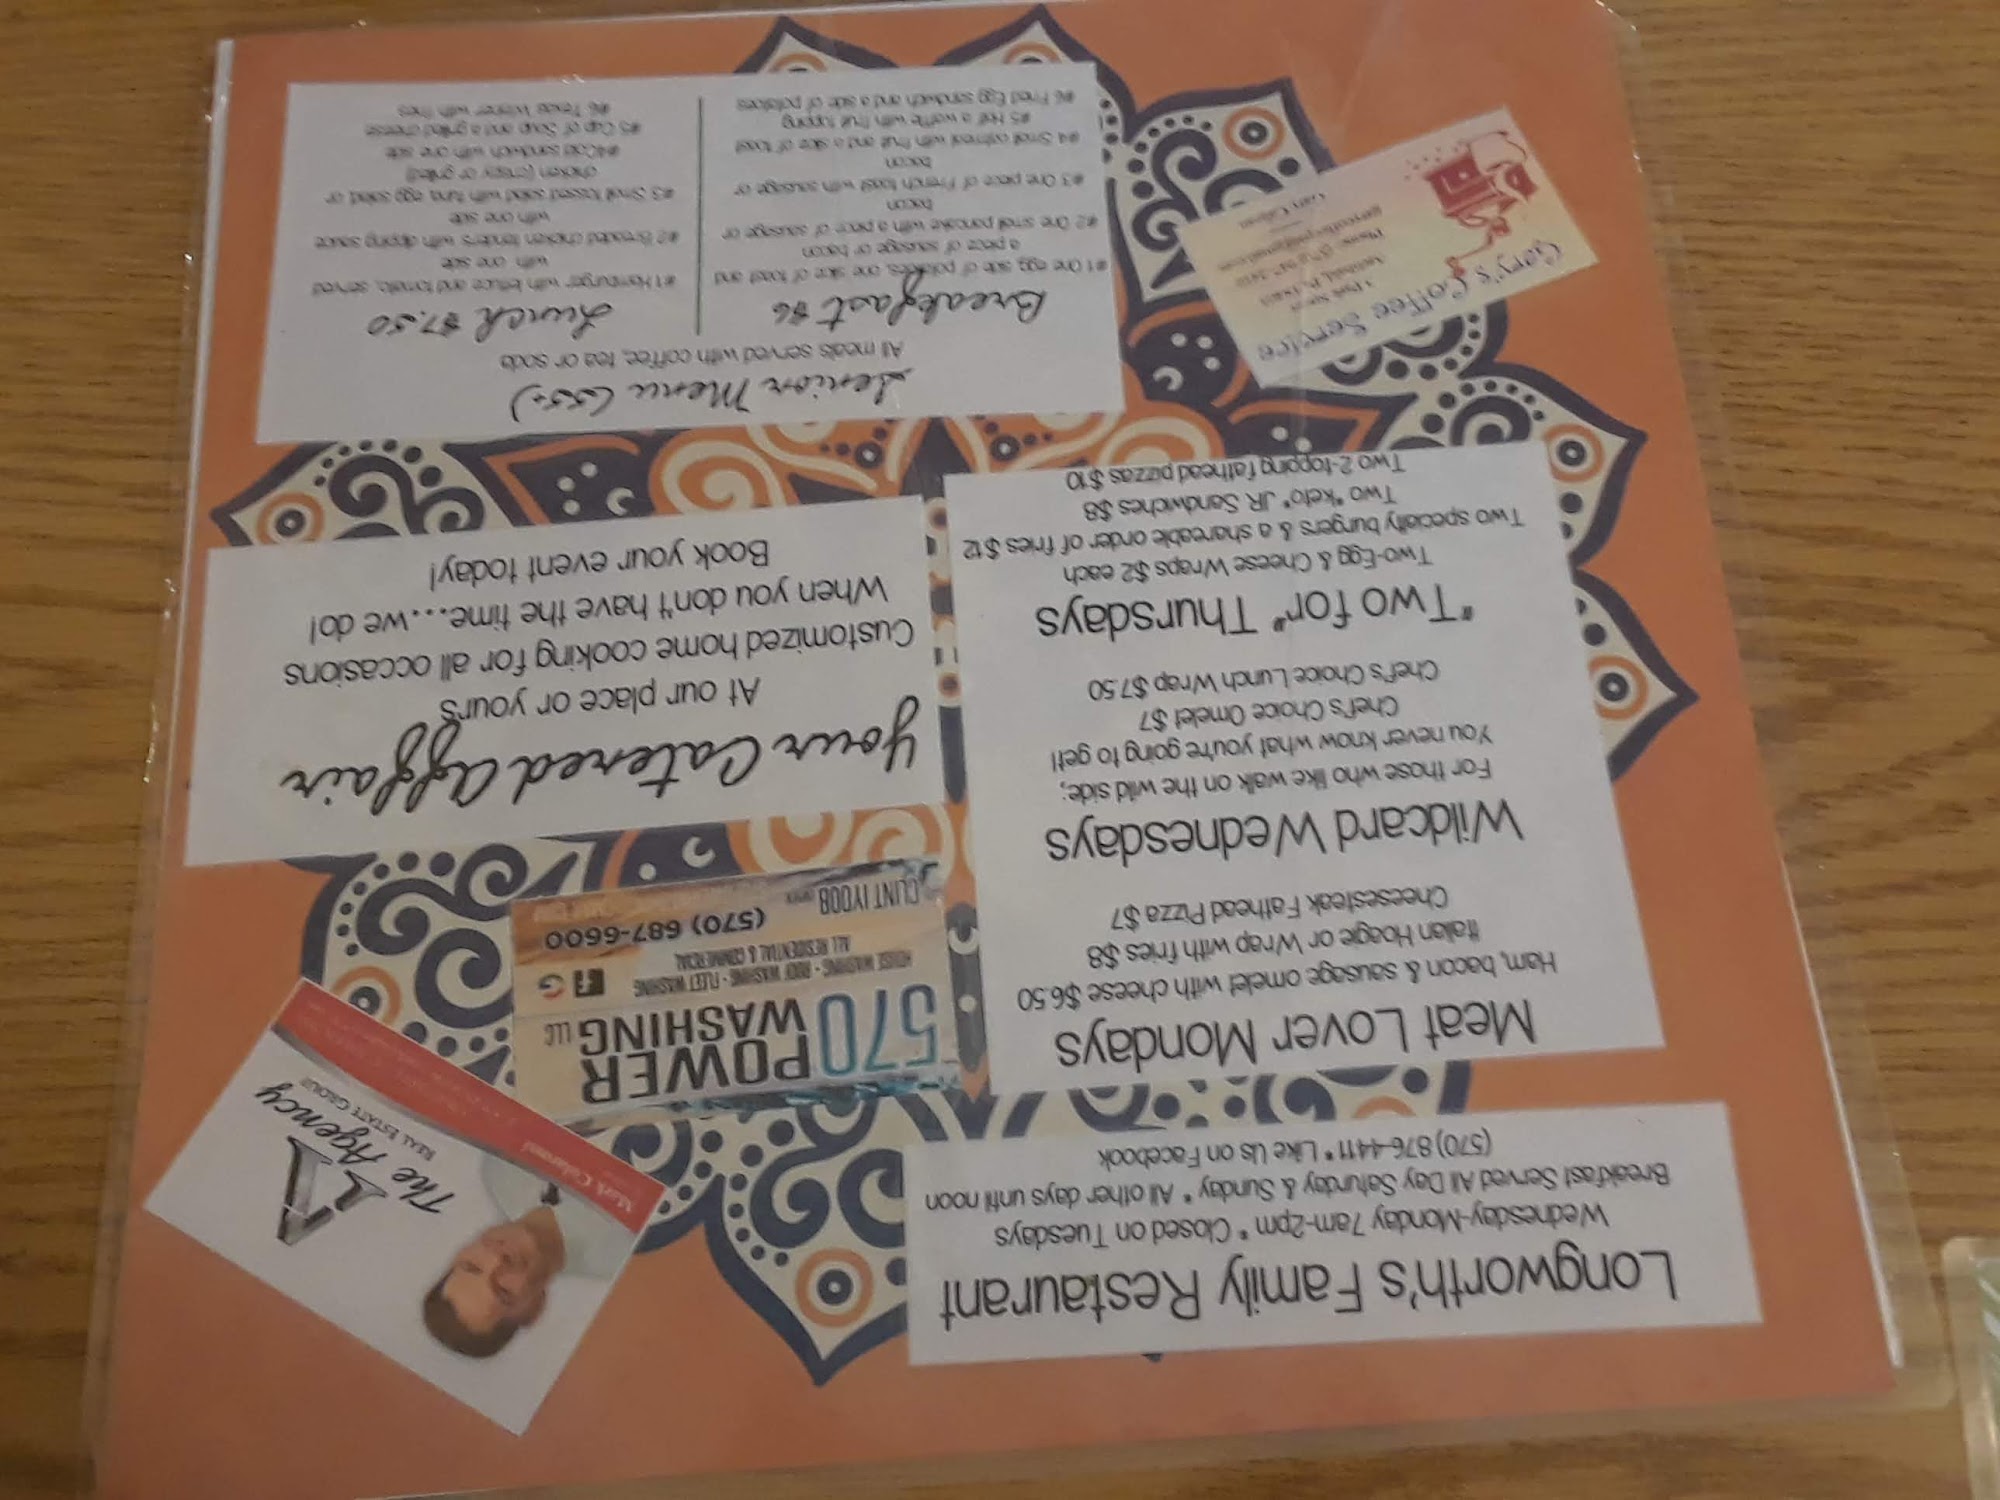 Longworth's Family Restaurant
Wednesday-Monday 7am-2pm * Closed on Tuesdays
Breakfast Served All Day Saturday & Sunday * All other days until noon
(570) 876-4411 * Like Us on Facebook
The Agency
REAL ESTATE GROUP
Mark
Meat Lover Mondays
Ham, bacon & sausage omelet with cheese $6.50
Italian Hoagie or Wrap with fries $8
Cheesesteak Fathead Pizza $7
Wildcard Wednesdays
For those who like walk on the wild side;
You never know what you're going to get!
Chef's Choice Omelet $7
Chef's Choice Lunch Wrap $7.50
"Two for" Thursdays
Two-Egg & Cheese Wraps $2 each
Two specialty burgers & a shareable order of fries $12
Two "keto" JR. Sandwiches $8
Two 2-topping fathead pizzas $10
570 POWER
WASHING LLC
HOUSE WASHING • ROOF WASHING • FLEET WASHING
ALL RESIDENTIAL & COMMERCIAL
(570) 687-6600
CLINT IYOOB
Your Catered Affair
At our place or yours
Customized home cooking for all occasions
When you don't have the time...we do!
Book your event today!
Gary's Coffee Service
Senior Menu (55+)
All meals served with coffee, tea or soda
Breakfast $6
#1 One egg, side of potatoes, one slice of toast and
a piece of sausage or bacon
#2 One small pancake with a piece of sausage or
bacon
#3 One piece of French toast with sausage or
bacon
#4 Small oatmeal with fruit and a slice of toast
#5 Half a waffle with fruit topping
#6 Fried Egg sandwich and a side of potatoes
Lunch $7.50
#1 Hamburger with lettuce and tomato, served
with one side
#2 Breaded chicken tenders with dipping sauce
with one side
#3 Small tossed salad with tuna, egg salad, or
chicken (crispy or grilled)
#4Cold sandwich with one side
#5 Cup of Soup and a grilled cheese
#6 Texas Wiener with fries